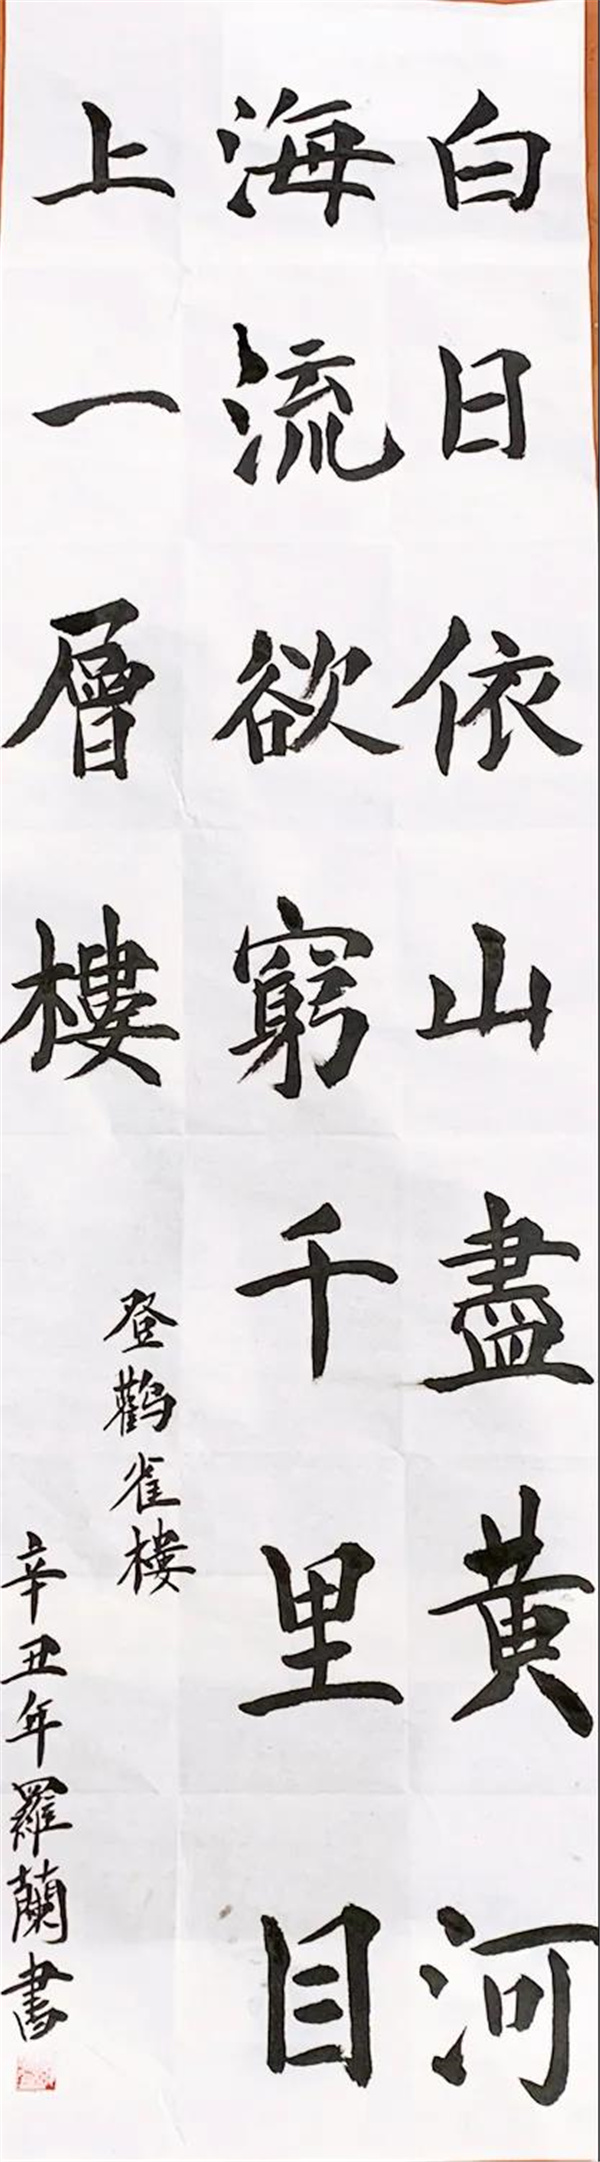 白日依山盡黄河
海流欲窮千里目
上一層樓
登鹳雀樓
辛丑年羅蘭書